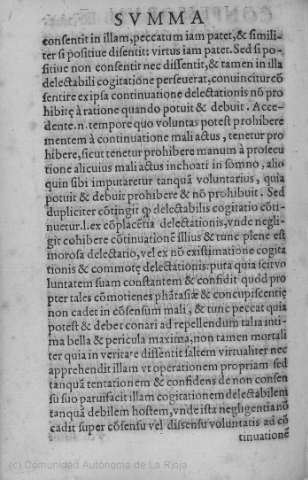 SVMMA
consentit in illam, peccatum iam patet, & simili-
ter si positiue disentit: virtus iam patet. Sed si po-
sitiue non consentit nec dissentit, & tamen in illa
delectabili cogitatiõe perseuerat, conuincitur cõ
sentire ex ipsa continuatione delectationis nõ pro
hibitę à ratione quando potuit & debuit. Acce-
dente. n. tempore quo voluntas potest prohibere
mentem à continuatione mali actus, tenetur pro
hibere, sicut tenetur prohibere manum à prosecu
tione alicuius mali actus inchoati in somno, alio
quin sibi imputaretur tanquã voluntarius, quia
potuit & debuit prohibere & nõ prohibuit. Sed
dupliciter cõtingit delectabilis cogitatio cõti-
nuetur. I. ex cõplacẽtia delectationis, vnde negli-
git cohibere cõtinuationẽ illius & tunc plene est
morosa delectatio, vel ex nõ existimatione cogita
tionis & commotę delectationis: puta quia scit vo
luntatem suam constantem & confidit quòd pro
pter tales cõmotiones phãtasiæ & concupiscentię
non cadet in cõsensum mali, & tunc peccat quia
potest & debet conari ad repellendum talia inti-
ma bella & pericula maxima, non tamen mortali
ter quia in veritate dissentit saltem virtualiter nec
apprehendit illam vt operationem propriam sed
tanquã tentationem & confidens de non consen
su suo paruifacit illam cogitationem delectabilem
tanquã debilem hostem, vnde ista negligentia nõ
cadit super cõsensu vel dissensu voluntatis ad cõ
tinuationẽ
(c) Comunidad Autónoma de La Rioja